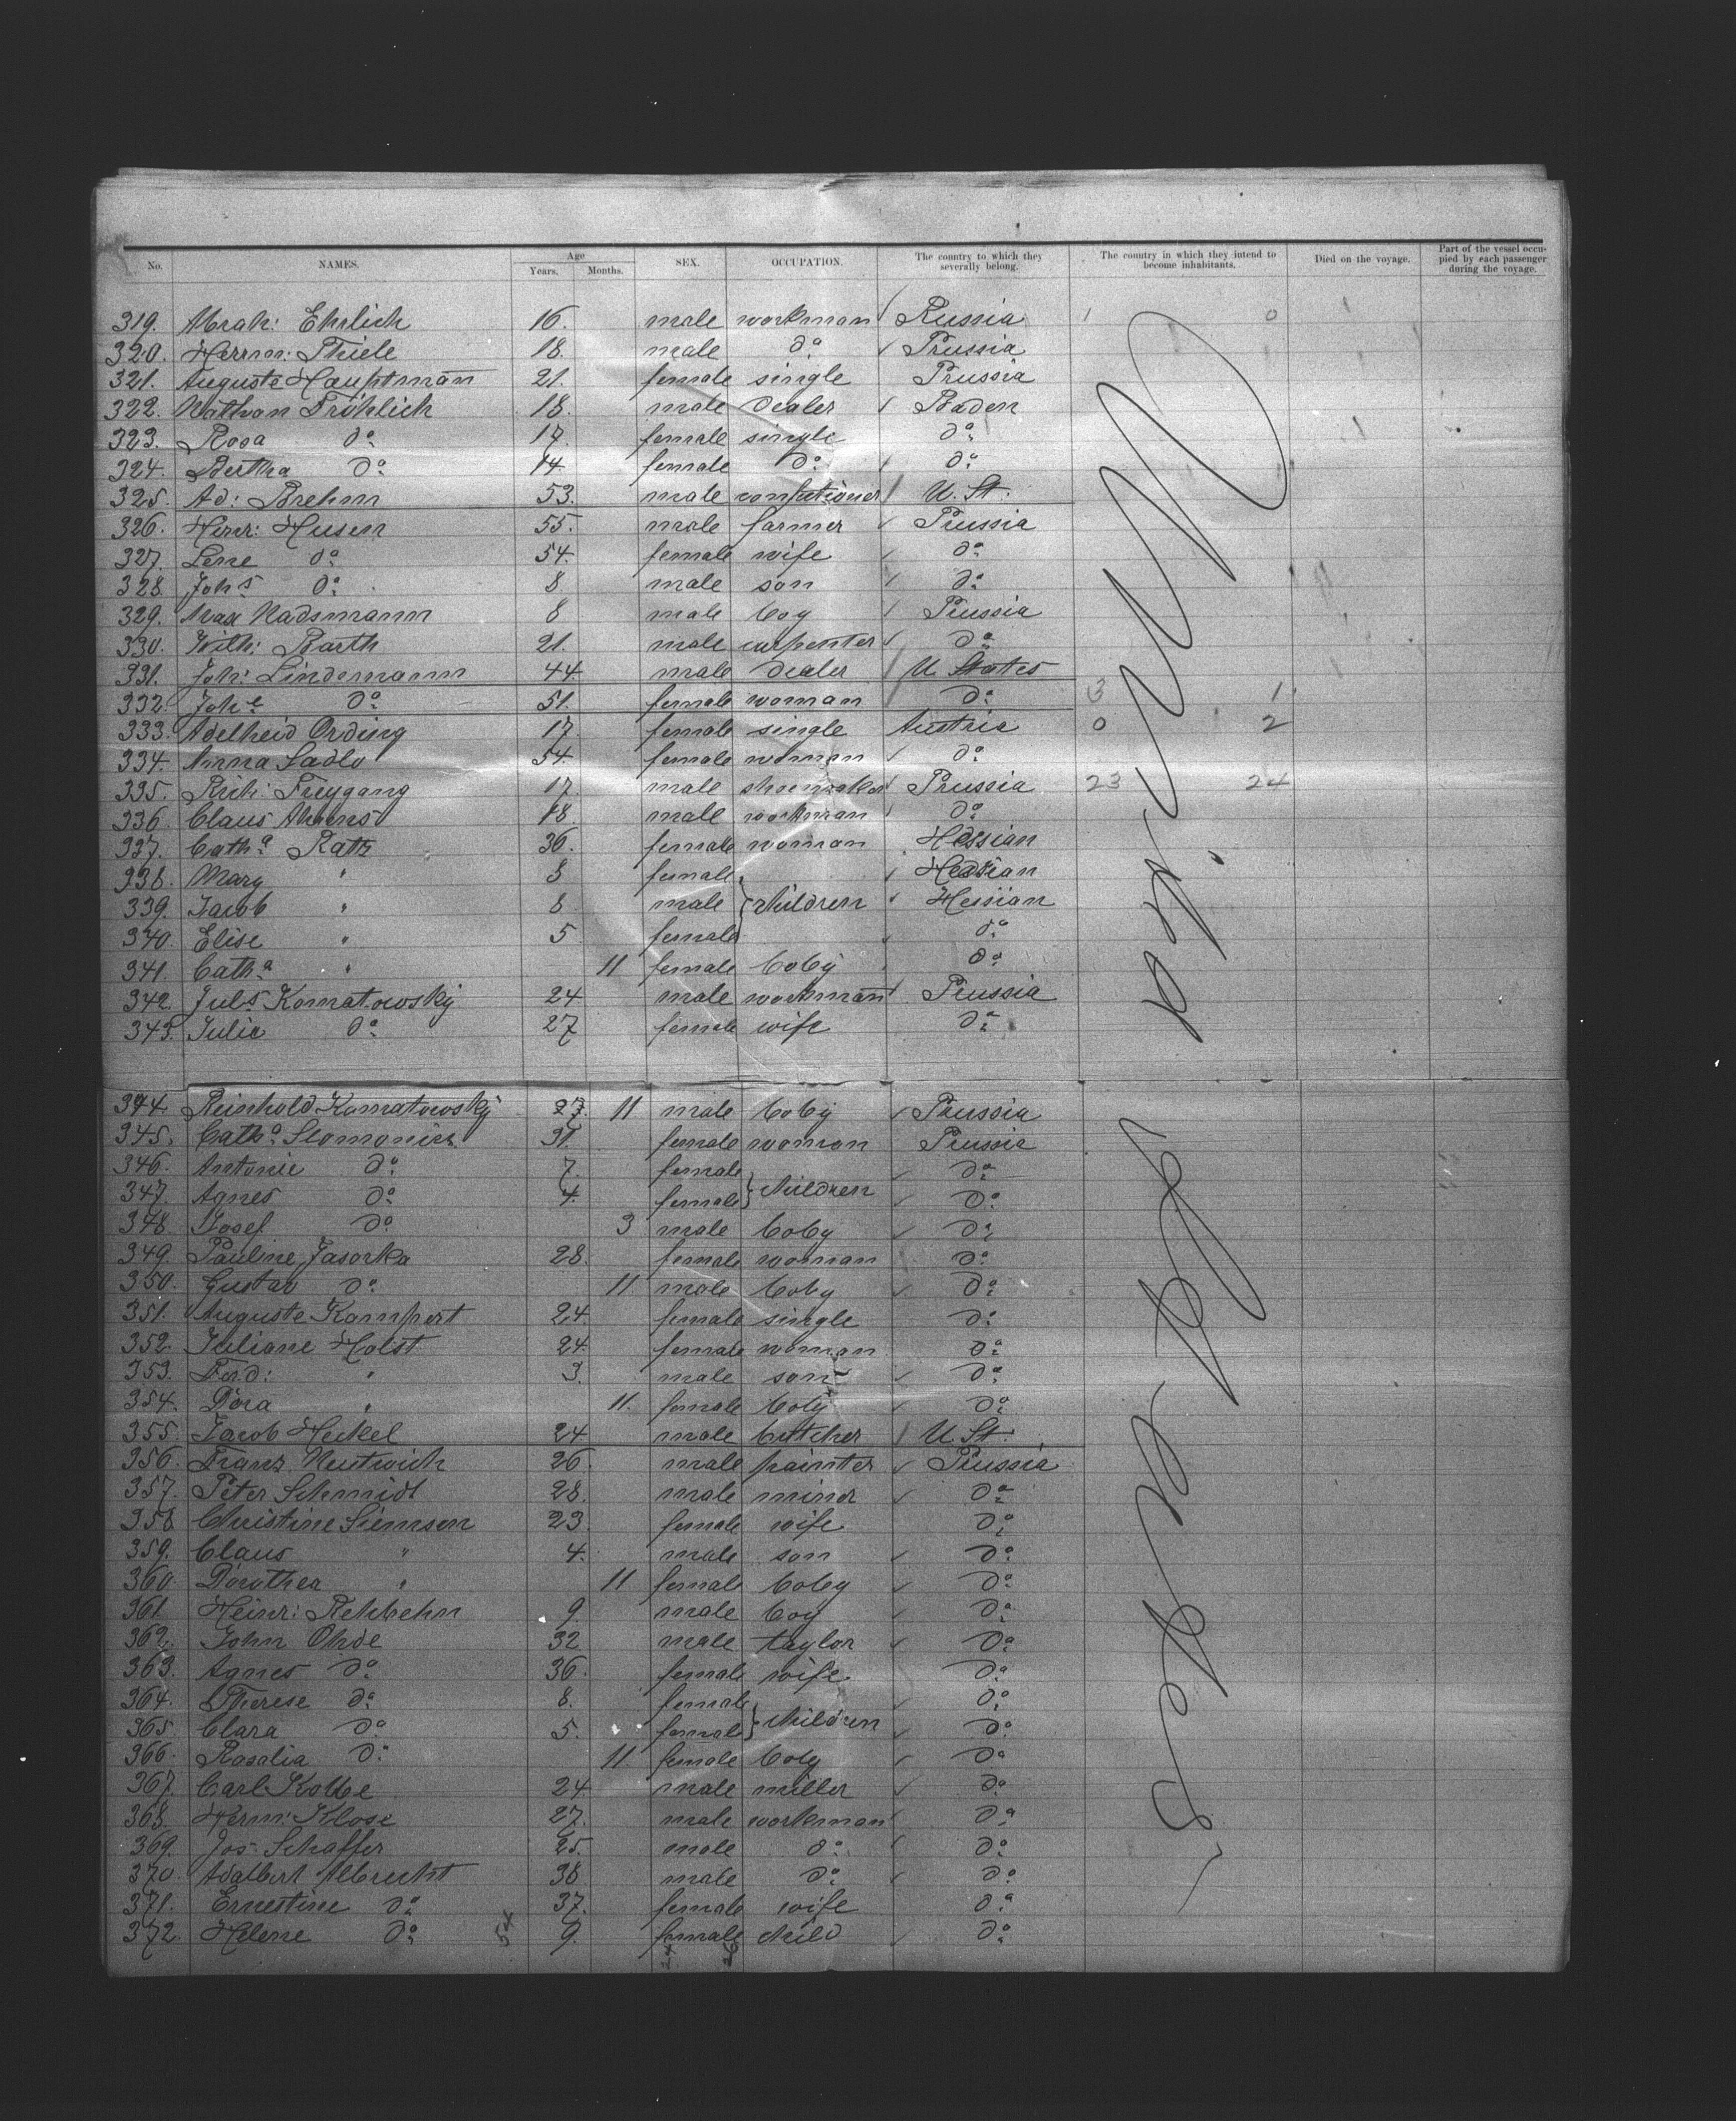 No. NAMES. Age Years. Months. SEX. OCCUPATION. The country to which they severally belong. The country in which they intend to become inhabitants. Died on the voyage. Part of the vessel occupied by each passenger during the voyage.
319. Abrah: Ehrlich 16. male workman Russia 0
320. Herrm: Thiele 18. male do Prussia
321. Auguste Hauptmann 21. female single Prussia
322. Nathan Fröhlich 18. male dealer Baden
323. Rosa do 17. female single do
324. Bertha do 14. female do do
325. Ad: Brehm 53. male confutioner U. St.
326. Hinr: Husen 55. male farmer Prussia
327. Lene do 54. female wife do
328. Johs do 8. male son do
329. Max Nadsmann 8 male boy Prussia
330. Wilh: Barth 21. male carpenter do
331. Joh: Lindemann 44. male dealer U. States
332. Johe do 51. female woman do 3 1.
333. Adelheid Ording 17. female single Austria 0 2
334. Anna Sadlo 54. female woman do
335. Rich: Freygang 17. male shoemaker Prussia 23 24
336. Claus Ahrens 18. male workman do
337. Catha Ratz 36. female woman Hessian
338. Mary " female Hessian
339. Jacob " 8. male children Hessian
340. Elise " 5 female do
341. Catha " 11 female baby do
342. Juls Komatowsky 24 male workman Prussia
343. Julie do 27 female wife do
344. Reinhold Komatowsky 11 male baby Prussia
345. Catha Slomonier 31. female woman Prussia
346. Antonie do 7. female do
347. Agnes do 4. female children do
348. Josef do 3 male baby do
349. Pauline Jasorka 28. female woman do
350. Gustav do 11 male baby do
351. Auguste Kampert 24. female single do
352. Juliane Holst 24. female woman do
353. Ferd: " 3. male son do
354. Dora " 11. female baby do
355. Jacob Heckel 24 male butcher U. St.
356. Franz Neutwich 26. male painter Prussia
357. Peter Schmidt 28. male miner do
358 Christine Siemsen 23 female wife do
359. Claus " 4. male son do
360. Dorothea " 11 female baby do
361. Heinr: Rehbehn 9. male boy do
362. John Ohde 32 male taylor do
363. Agnes do 36. female wife do
364. Therese do 8. female do
365. Clara do 5. female children do
366. Rosalia do 11. female baby do
367. Carl Kolbe 24. male miller do
368. Herm: Klose 27. male workman do
369. Jos: Schaffer 25. male do do
370 Adalbert Albrecht 38 male do do
371. Ernestine do 37. female wife do
372. Helene do 9. female child do
54 24 26